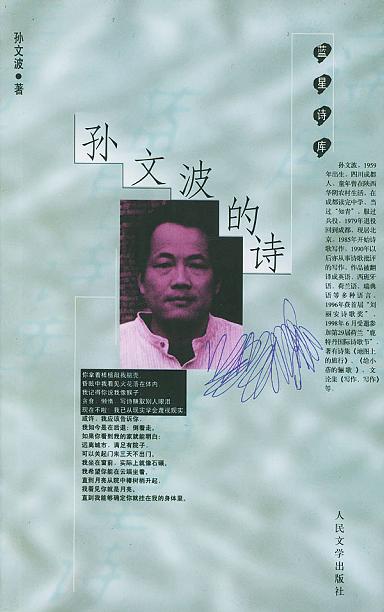 孙文波●著
蓝星诗库
孙文波的诗
孙文波，1959
年出生，四川成都
人。童年曾在陕西
华阴农村生活。在
成都读完中学。当
过“知青”，服过
兵役。1979年退役
回到成都。现居北
京。1985年开始诗
歌写作，1990年以
后亦从事诗歌批评
的写作。作品被翻
译成英语、西班牙
语、荷兰语、瑞典
语等多种语言。
1996年获首届“刘
丽安诗歌奖”，
1998年6月受邀参
加第29届荷兰“鹿
特丹国际诗歌节”。
著有诗集《地图上
的旅行》、《给小
蓓的俪歌》、文
论集《写作、写作》
等。
你拿着棒槌敲我脑壳，
昏眩中我看见火花落在体内
我记得你说我像猴子
贪食、懒惰，写诗赚取别人眼泪
现在不啦，我已从现实学会蔑视现实。
或许，我应该告诉你，
我如今是在后退：倒着走。
如果你看到我的家就能明白：
远离城市，满足有院子，
可以关起门来三天不出门。
我坐在窗前，实际上就像石碾。
我希望你能在云端坐着，
直到月亮从院中椿树梢升起，
我看见你就是月亮。
直到我能够确定你就挂在我的身体里。
人民文学出版社